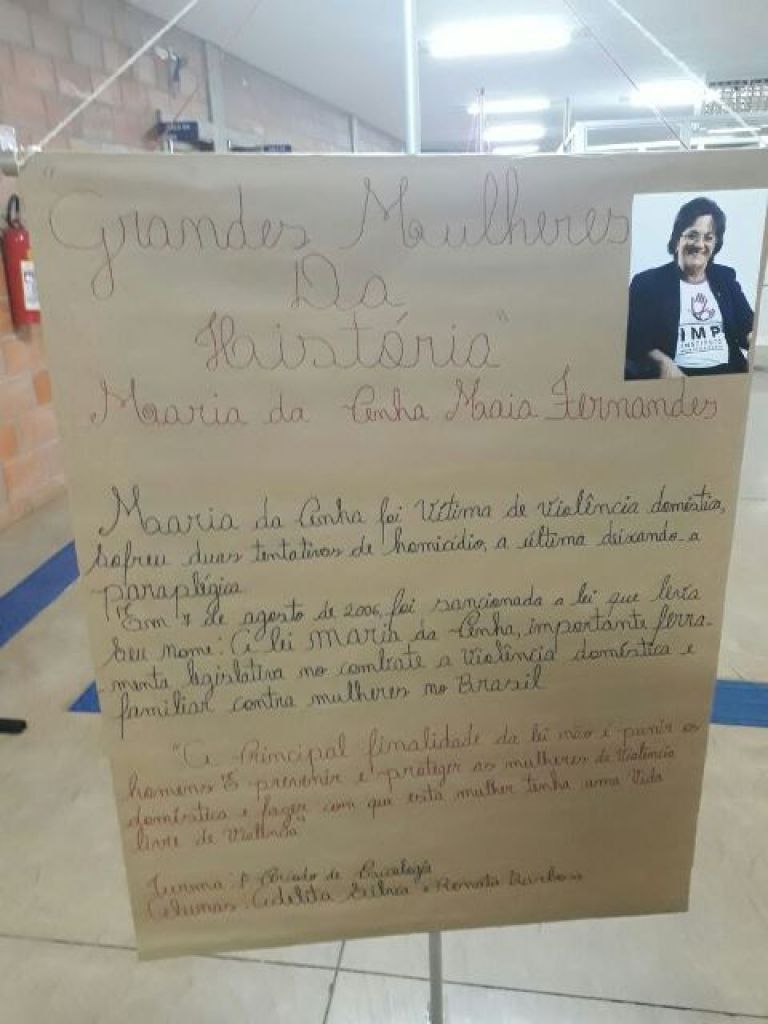 "Grandes Mulheres
Da
História"
Maria da Penha Maia Fernandes
IMP
INSTITUTO
Maria da Penha foi Vítima de Violência doméstica,
sofreu duas tentativas de homicídio, a última deixando-a
paraplégica
Em 7 de agosto de 2006, foi sancionada a lei que leva
seu nome: A lei Maria da Penha, importante ferra-
menta legislativa no combate a Violência doméstica e
familiar contra mulheres no Brasil
"A Principal finalidade da lei não é punir os
homens. É prevenir e proteger as mulheres da Violência
doméstica e fazer com que esta mulher tenha uma Vida
livre de Violência"
Turma: de Psicologia
Alunas: Adelita Silva e Renata Barbosa